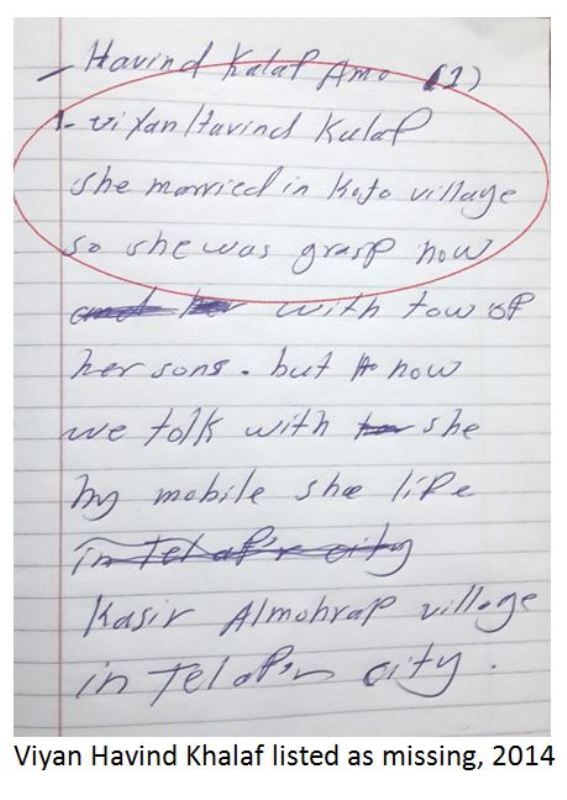 - Havind Kalaf Amo (1)
1- viyan Havind Kulaf
she married in Kojo village
so she was grasp now
with tow of
her sons. but now
we talk with she
by mobile she life
in Telafir city
Kasir Almohraf village
in Telafir city.
Viyan Havind Khalaf listed as missing, 2014